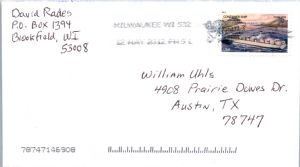 David Rades
P.O. Box 1394
Brookfield, WI
53008
MILWAUKEE WI 532
12 MAY 2012 PM 5 L
William Uhls
4908 Prairie Dunes Dr.
Austin, TX
78747
78747146908